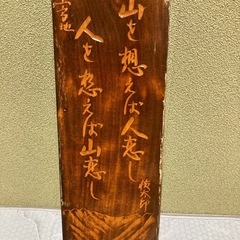 山を想えば人恋し
人を想えば山恋し
上高地